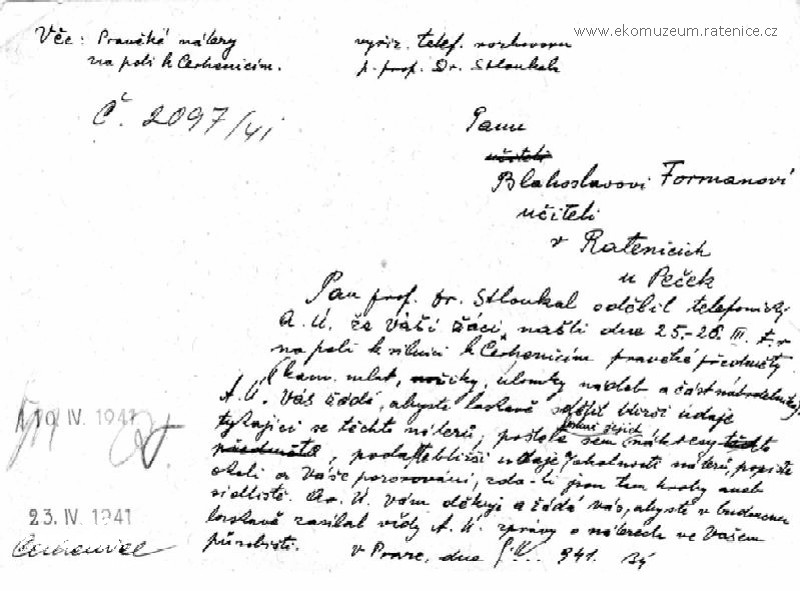 www.ekomuzeum.ratenice.cz
Věc: Pravěké nálezy
na poli k Cerhenicím.
vyříz. telef. rozhovoru
p. prof. Dr. Stloukal
Č. 2097/41
Panu
učiteli
Blahoslavovi Formanovi
učiteli
v Ratenicích
u Peček
Pan prof. Dr. Stloukal sdělil telefonicky
A. Ú. že Vaši žáci, našli dne 25.-26. III. t. r.
na poli k silnici k Cerhenicím pravěké předměty
(kam. mlat, nožíky, úlomky nádob a část náhrdelníku).
A. Ú. Vás žádá, abyste laskavě sdělil bližší údaje
týkající se těchto nálezů, poslal sem nákresy těchto
předmětů, podal bližší údaje o okolnosti nálezů, popište
okolí a Vaše pozorování, zda-li jsou tam hroby aneb
sídliště. A. Ú. Vám děkuje a žádá Vás, abyste v budoucnu
laskavě zasílal vždy A. Ú. zprávy o nálezech ve Vašem
působišti.
v Praze, dne 941.
19 IV. 1941
23. IV. 1941
Cerhenice